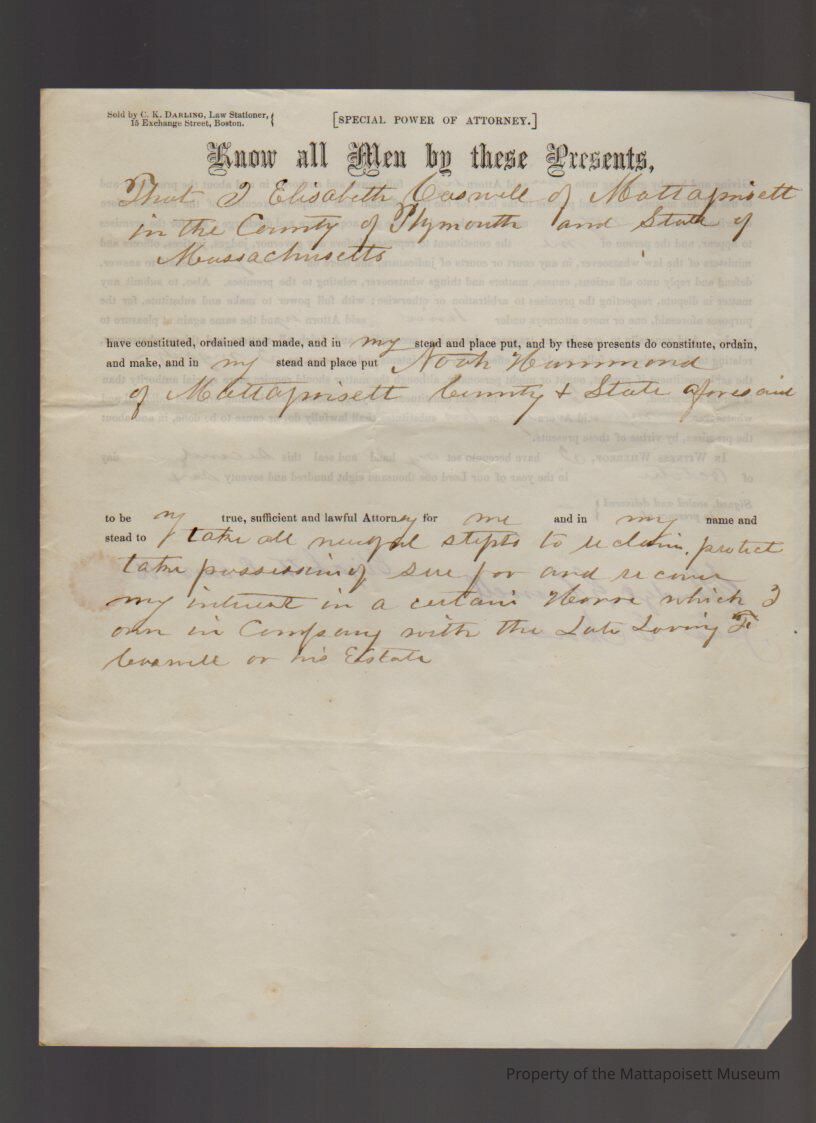 Sold by C. K. DARLING, Law Stationer,
15 Exchange Street, Boston.
[SPECIAL POWER OF ATTORNEY.]
Know all Men by these Presents,
That I Elisabeth Caswell of Mattapoisett
in the County of Plymouth and State of
Massachusetts
have constituted, ordained and made, and in my stead and place put, and by these presents do constitute, ordain,
and make, and in my stead and place put Noah Hammond
of Mattapoisett County & State aforesaid
to be my true, sufficient and lawful Attorney for me and in my name and
stead to take all needful steps to reclaim, protect
take possession of sue for and recover
my interest in a certain Horse which I
own in Company with the Late Loving
or his Estate
Property of the Mattapoisett Museum